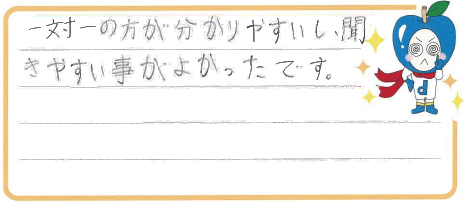 一対一の方が分かりやすいし、聞
きやすい事がよかったです。
d